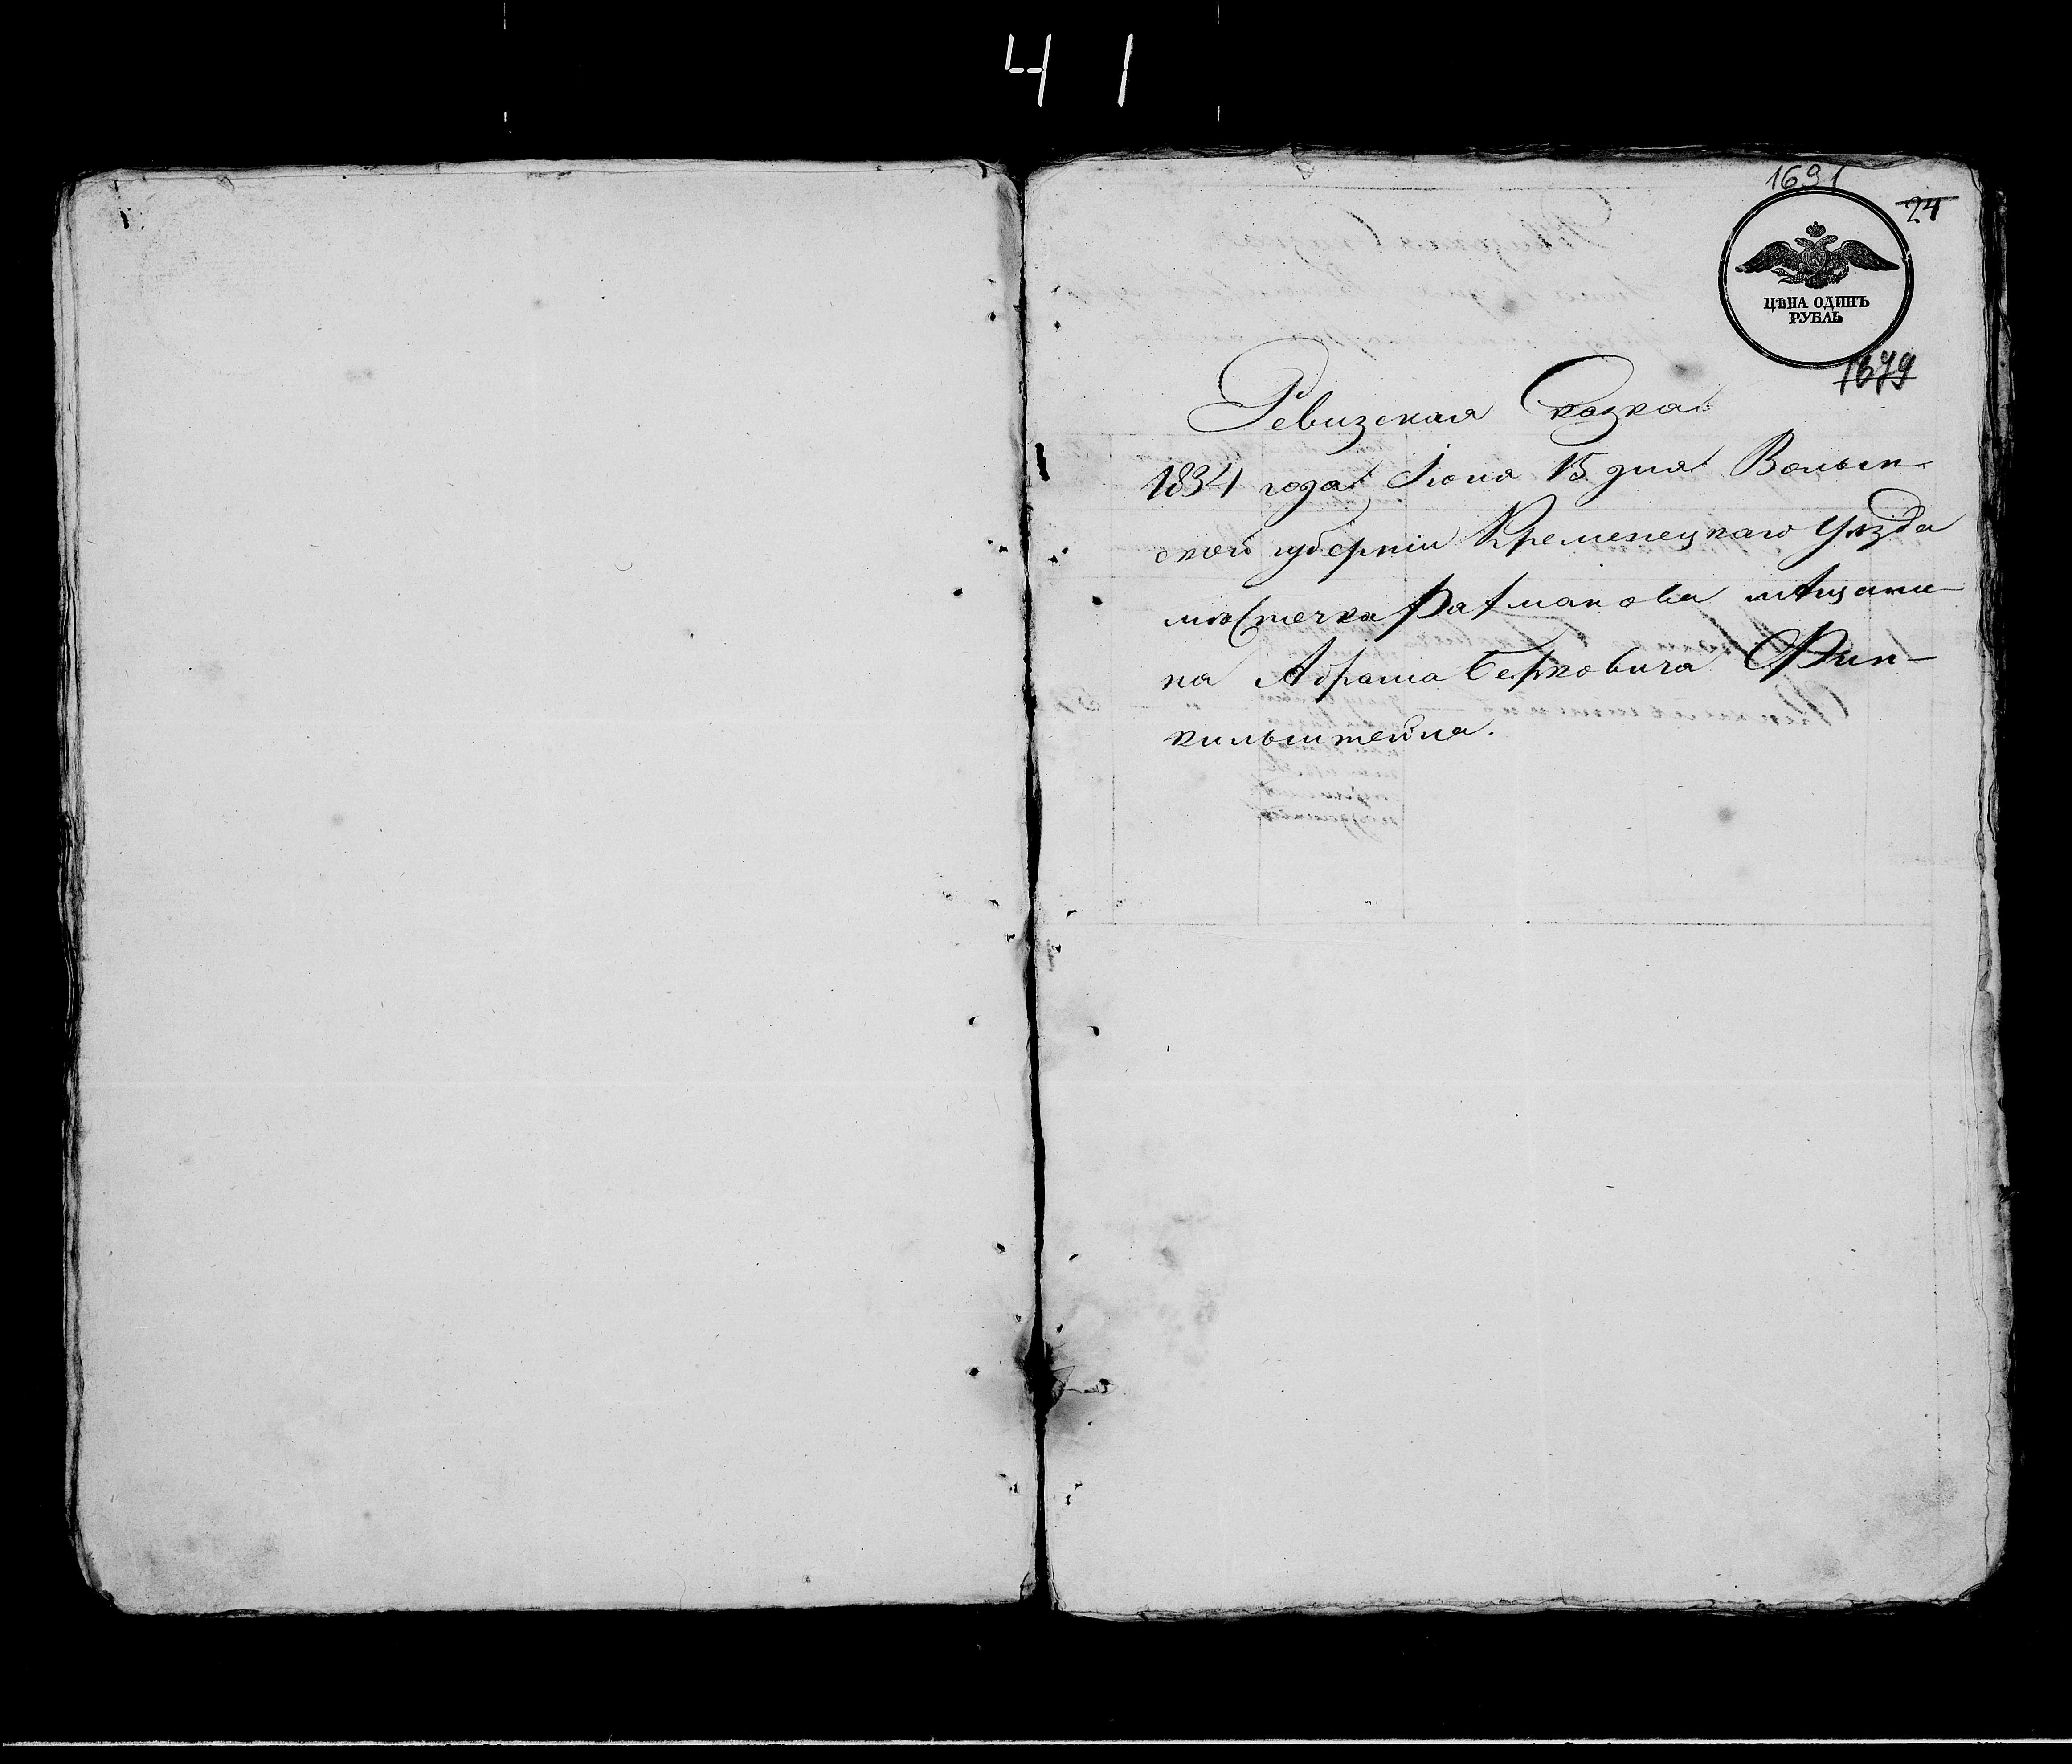 4 1
1691
24
ЦѢНА ОДИНЪ
РУБЛЬ
1679
Ревизская Сказка
1834 года Іюня 15 дня Волын-
ской губерніи Кременецкаго Уѣзда
мѣстечка Ратманова мѣщани-
на Абрама Берковича Фин-
кильштейна.